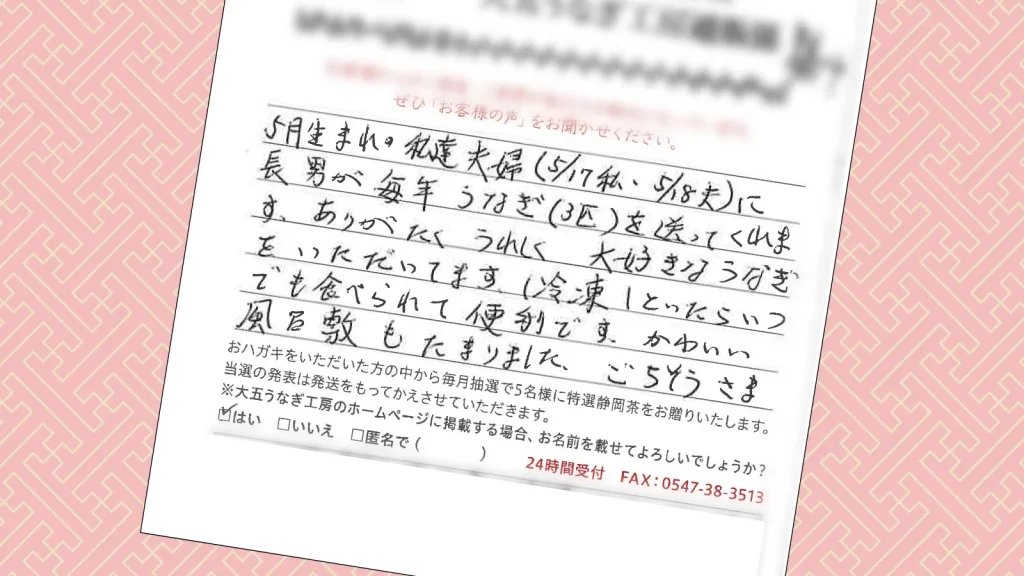 大五うなぎ工房通販部
ぜひ「お客様の声」をお聞かせください。
5月生まれの私達夫婦(5/17私・5/18夫)に
長男が毎年うなぎ(3匹)を送ってくれま
す。ありがたくうれしく 大好きなうなぎ
をいただいてます。(冷凍)といったらいつ
でも食べられて便利です。かわいい
風呂敷もたまりました、ごちそうさま
おハガキをいただいた方の中から毎月抽選で5名様に特選静岡茶をお贈りいたします。
当選の発表は発送をもってかえさせていただきます。
※大五うなぎ工房のホームページに掲載する場合、お名前を載せてよろしいでしょうか?
☑はい □いいえ □匿名で( )
24時間受付 FAX:0547-38-3513